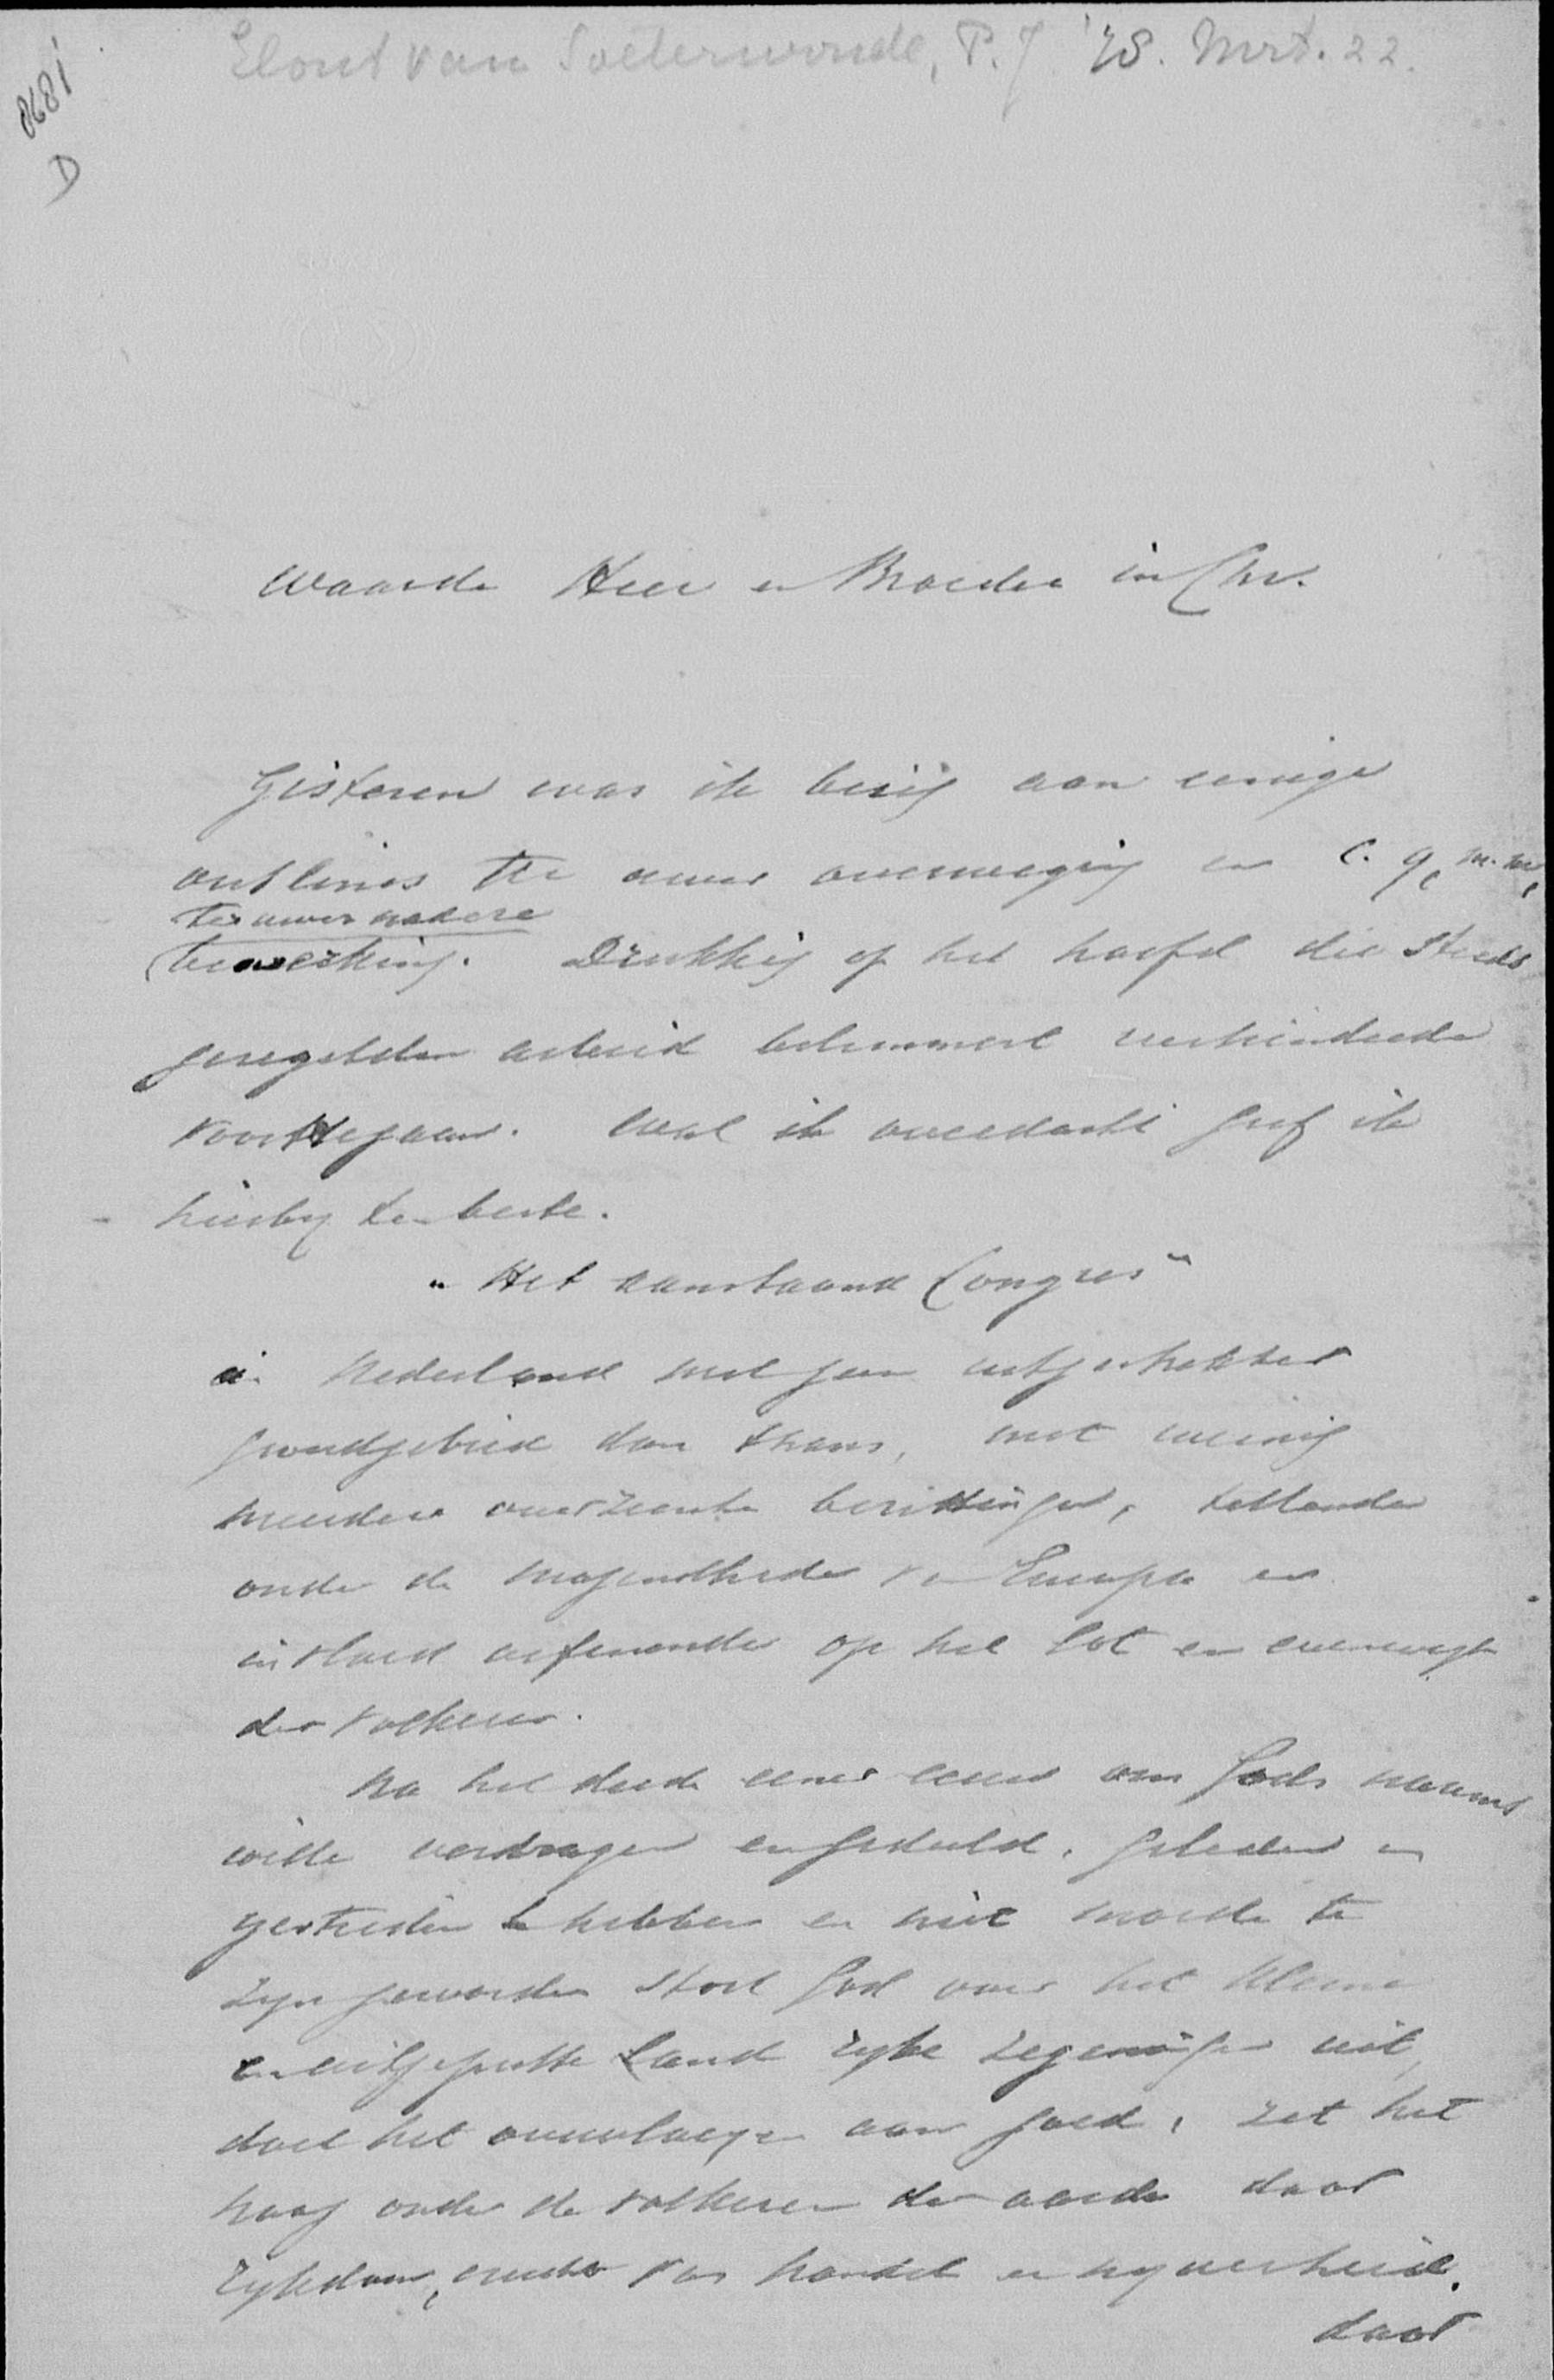 Elout van Soeterwoude, P.J. '78. Mrt. 22.
1870
D
Waarde Heer en Broeder in Chr.
Gisteren was ik bezig aan eenige
outlines ter uwer overweging en c. q. m. m.
ter uwer nadere
bewerking. Drukking op het hoofd die steeds
geregelden arbeid belemmert verhinderde
voorttegaan. Wat ik overdacht geef ik
hierby ten beste.
"Het aanstaand Congres"
Nederland met geen uitgestrekter
grondgebied dan thans, met weinig
meerdere overzeesche bezittingen, tellende
onder de mogendheden van Europa en
invloed oefenende op het lot en evenwigt
der volkeren.
Na het derde eener eeuw om Gods naams
wille verdragen en geduld, geleden en
gestreden te hebben en niet moede te
zyn geworden stort God over het kleine
en uitgeputte land ryke zegeningen uit,
doet het overvloeyen aan goed, zet het
hoog onder de volkeren der aarde door
rykdom, vrucht van handel en nyverheid,
door